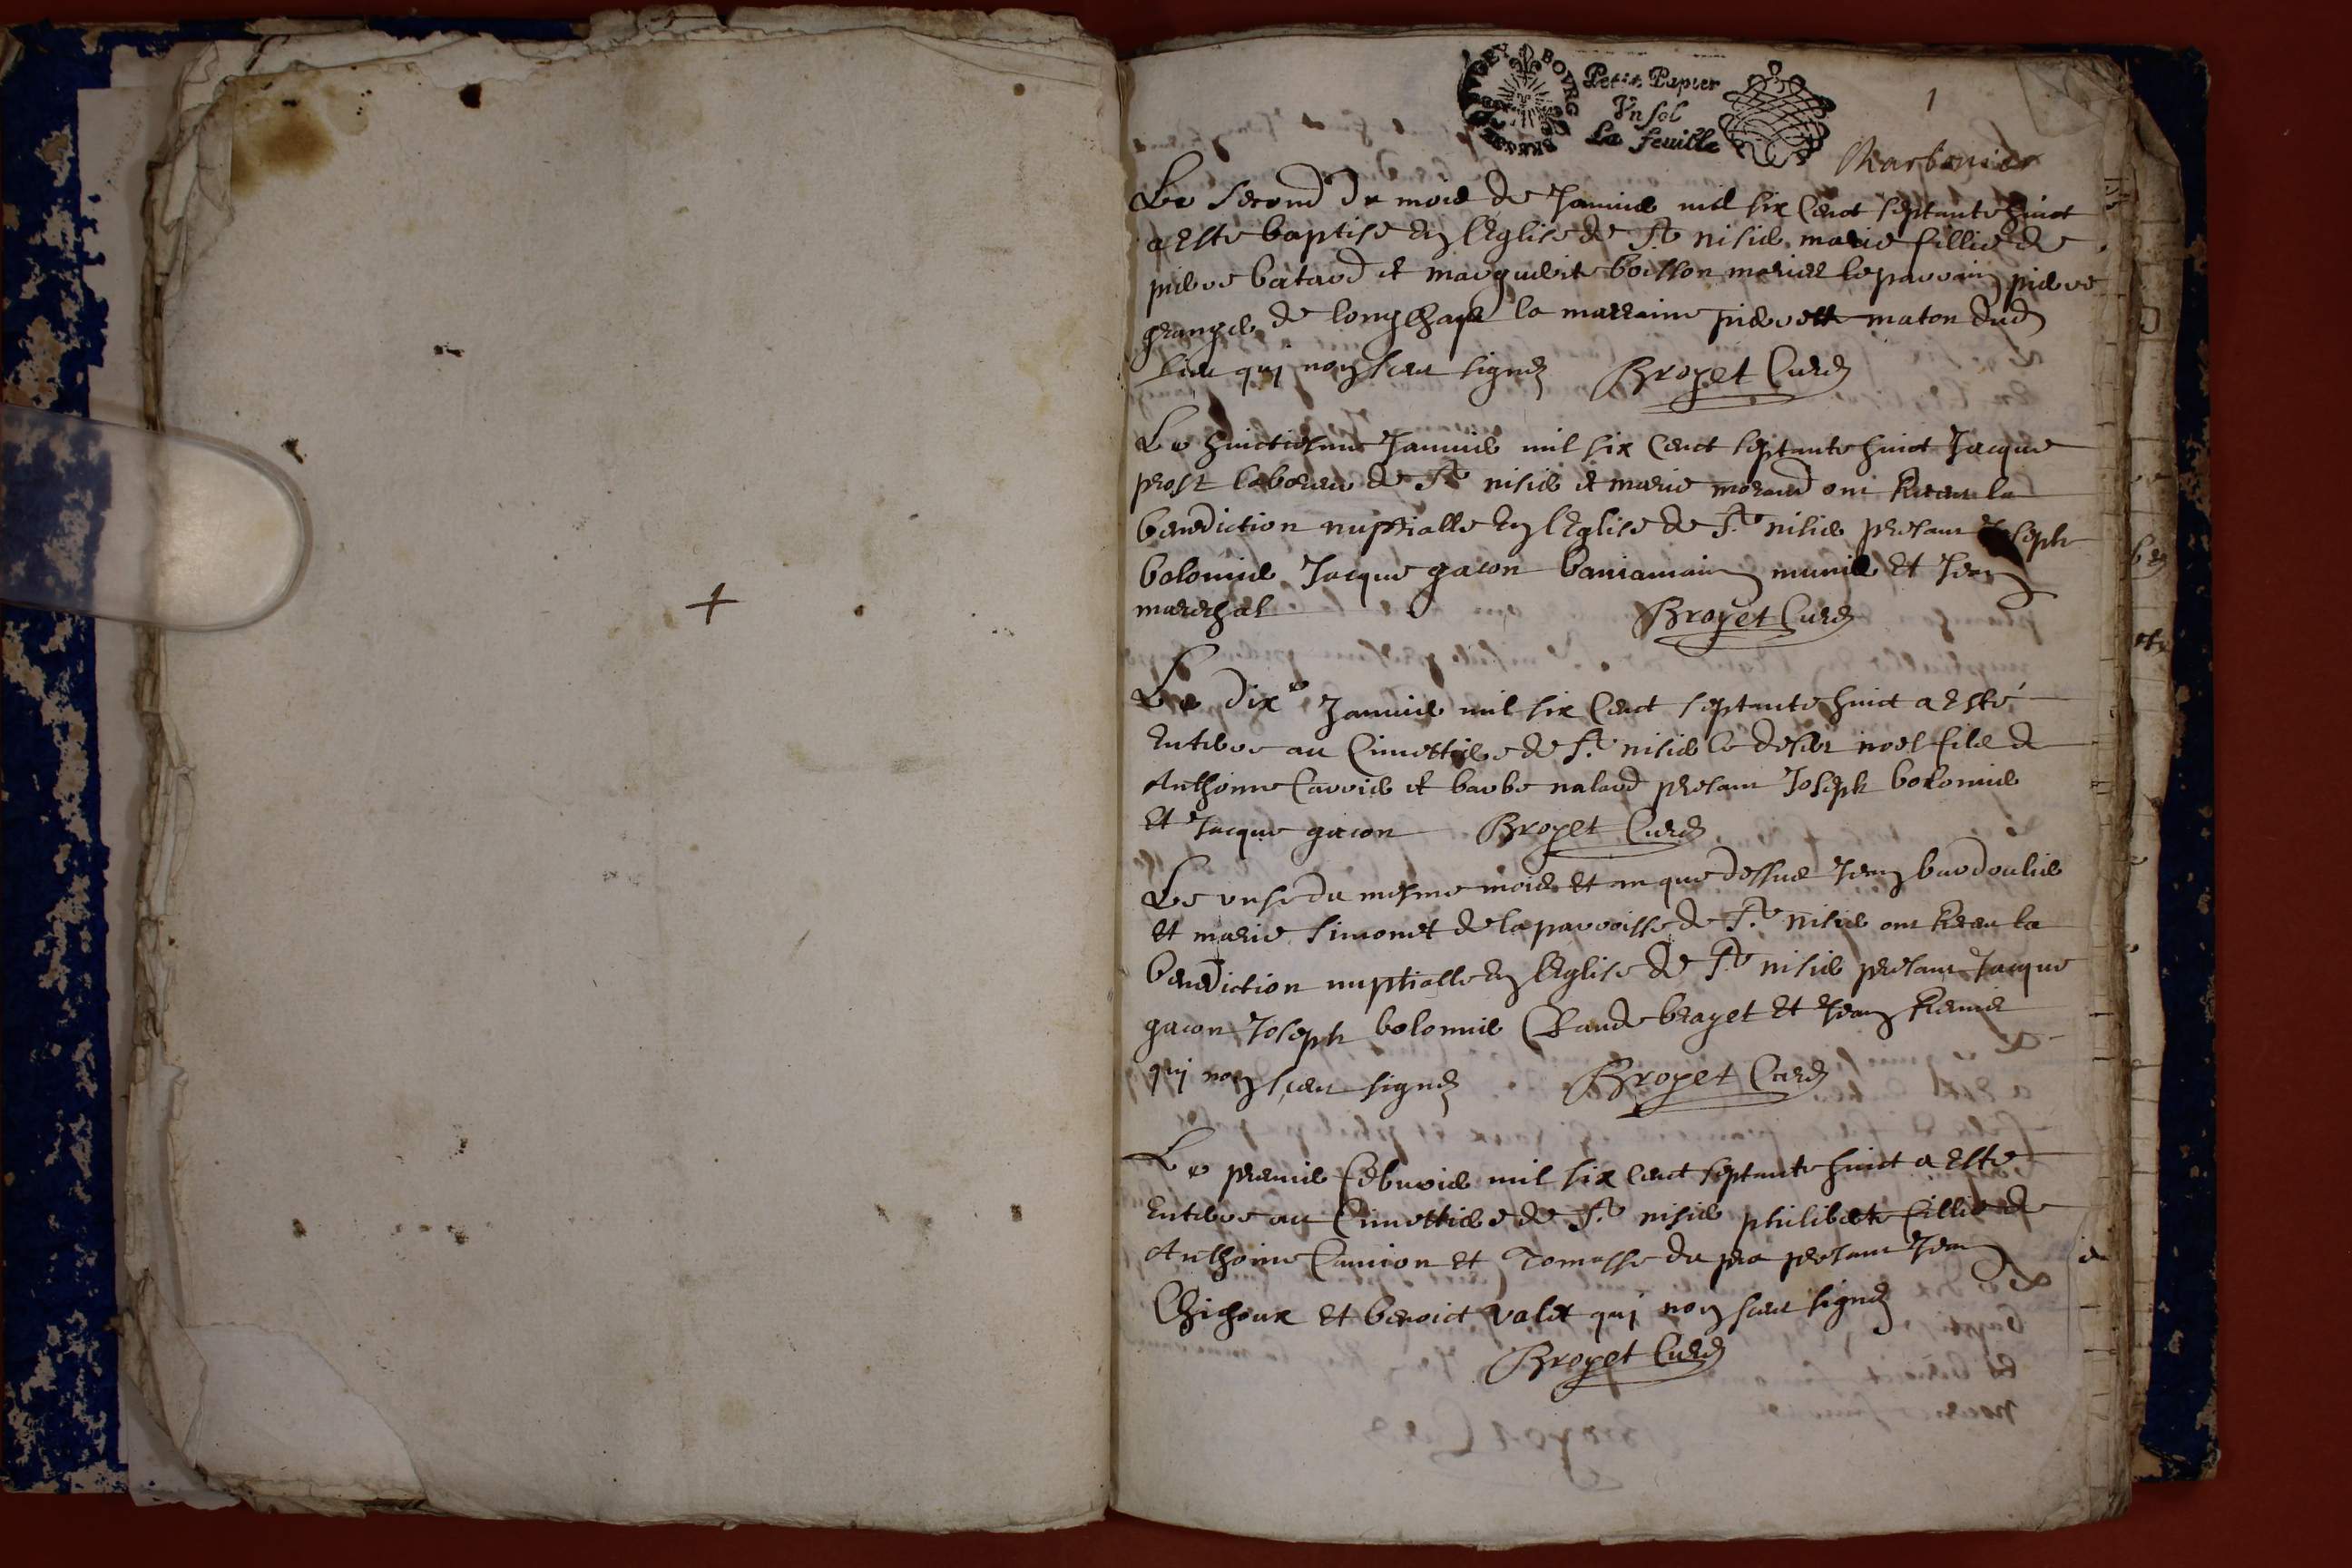 1
BOVRG
Petit Papier
Vn sol
La feuille
Le second du mois de Januier mil six cent septante huict
a este baptise en leglise de St nisier marie fillie de
pierre batard et marguerite boisson maries le parrain pierre
granger de longchap la marraine pierrette maton dud
lieu qui non sceu signer Broyet Curé
Le huictiesme Januier mil six cent septante huict Jacque
prost laboureur de St nisier et marie morand ont Receu la
benediction nuptialle en leglise de St nisier presant Joseph
bolomier Jacque gacon baniamain munier et Jean
marechal Broyet Curé
Le dixe Januier mil six cent septante huict a esté
enterre au Cimettiere de St nisier le desert noel fils de
Anthoinne Carrier et barbe nalard presant Joseph bolomier
et Jacque gacon Broyet Curé
Le onse du mesme mois et an que dessus Jean burdoulier
et marie simonet de la parroisse de St nisier ont Receu la
benediction nuptialle en leglise de St nisier presant Jacque
gacon Joseph bolomier Claude brayet et Jean Remier
qui non sceu signer Broyet Curé
Le premier febvrier mil six cent septante huict a este
enterre au Cimettiere de St nisier philiberte fillie de
Anthoine Camion et Tomasse du pra presant Jean
Chichoux et benoict valet qui non sceu signer
Broyet Curé